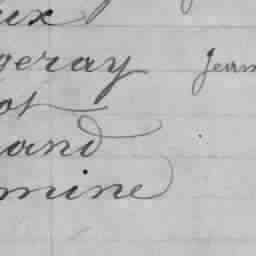 eux
geray Jean
ot
and
mine